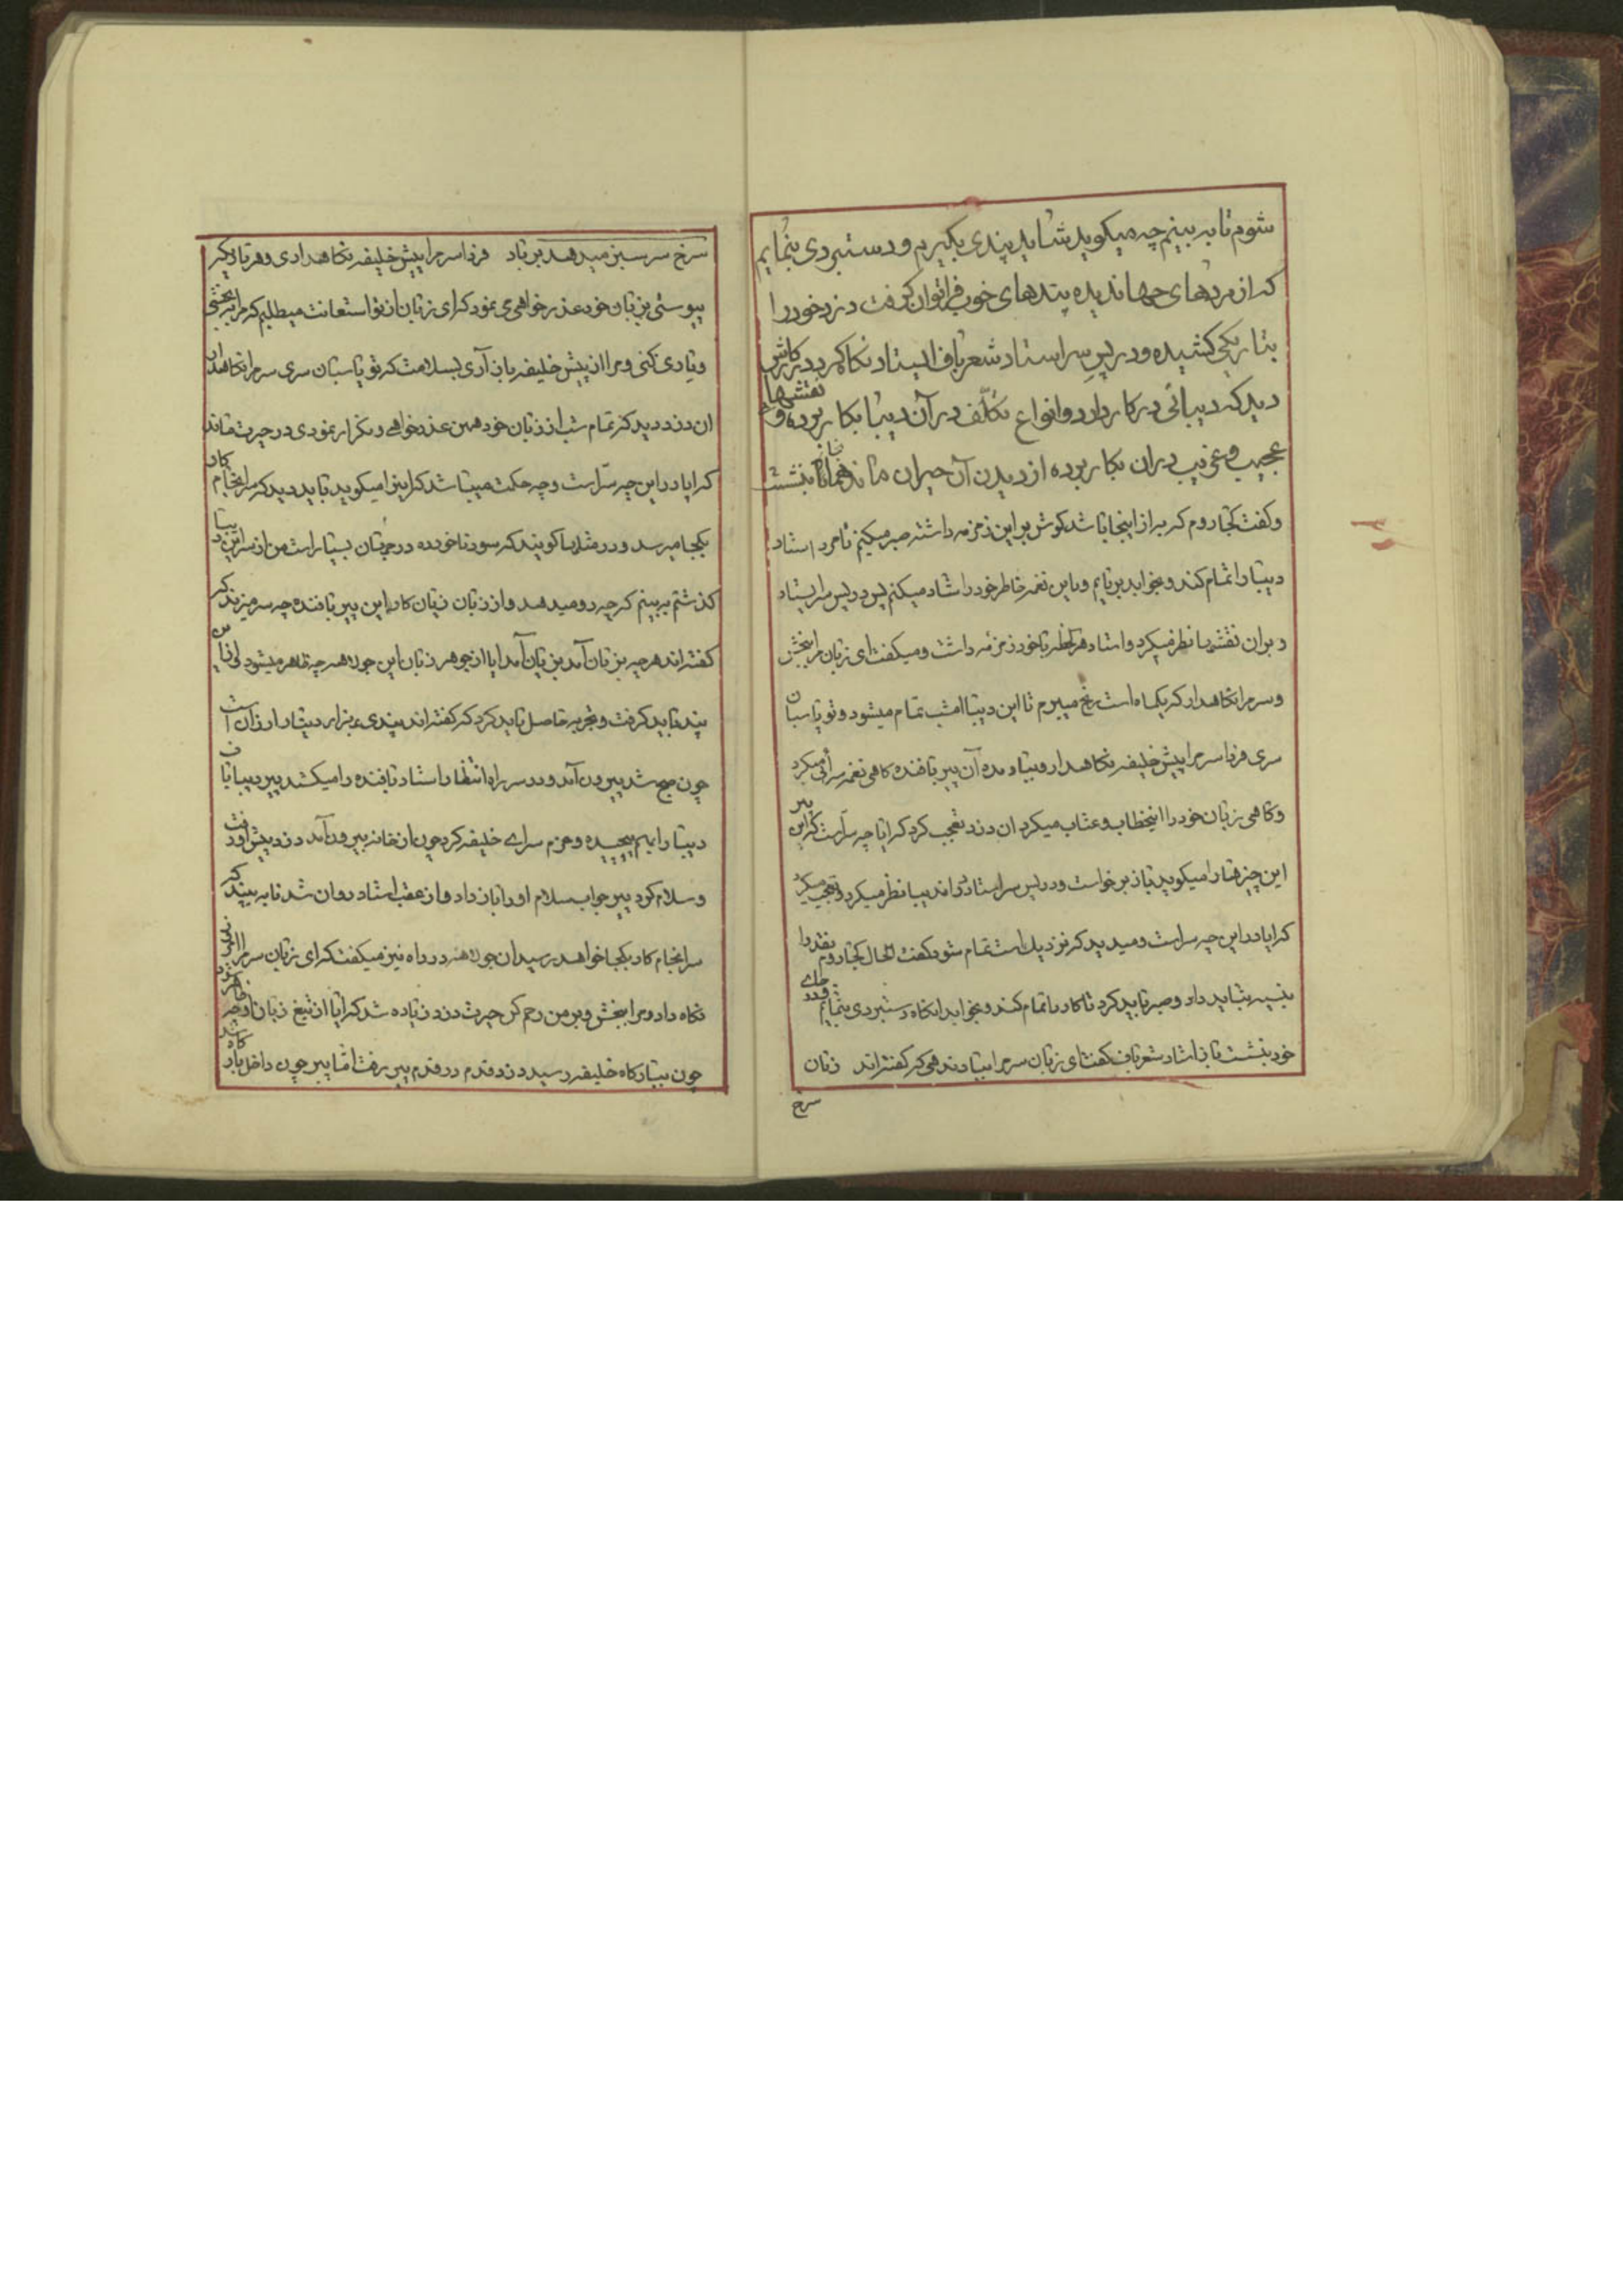 شوم تا به بینم چه میکوید شاید پندی بکیرم و دستبردی بنمایم
که از مردهای جهاندیده پندهای خوب فرا توان کرفت دزد خود را
بتاریکی کشیده و در پس سر استاد شعرباف ایستاد نکاه کرد در کارش
دید که دیبائی در کار دارد و انواع تکلّف در آن دیبا بکار برده و نقشهای
عجیب و غریب دران بکار برده از دیدن آن حیران ماند همانجا بنشست
و کفت کجا روم که به از اینجا باشد کوش بر این زمزمه داشته صبر میکنم تا مرد استاد
دیبا را تمام کند و بخوابد بربایم و باین نغمه خاطر خود را شاد میکنم پس در پس سر ایستاد
و بران نقشها نظر میکرد و استاد هر لحظه با خود زمزمه داشت و میکفت ای زبان مرا ببخش
و سر مرا نکاهدار که یکماه است رنج میبرم تا این دیبا امشب تمام میشود و تو پاسبان
سری فردا سر مرا پیش خلیفه نکاهدار و بباد مده آن پیر بافنده کاهی نغمه سرائی میکرد
و کاهی زبان خود را اینخطاب و عتاب میکرد ان دزد تعجب کرد که ایا چه سرّ است که این پیر
این چیزها را میکوید باز برخواست و در پس سر استاد در اند یبا نظر میکرد و تعجب میکرد
که ایا در این چه سر است و میدید که نزدیک است تمام شود کفت الحال کجا روم نقد را
بنسیه نباید داد و صبر باید کرد تا کار را تمام کند و بخوابد انکاه دستبردی بنمایم و در جای
خود بنشست باز استاد شعرباف کفت ای زبان سر مرا بباد ندهی که کفته اند زبان
سرخ
سرخ سر سبز میدهد بر باد فردا سر مرا پیش خلیفه نکاهداری و هر بار دیکر
پیوستی بزبان خود عذر خواهی می نمود که ای زبان از تو استعانت میطلبم که مرا ببخشی
و یاری کنی و مرا از پیش خلیفه باز آری بسلامت که تو پاسبان سری سر مرا نکاهدار
ان دزد دید که تمام شب از زبان خود همین عذر خواهی و تکرار نمودی در حیرت ماند
که ایا در این چه سرّ است و چه حکمت میباشد که این را میکوید باید دید که سرانجام کار
بکجا میرسد و در مثلها کویند که سود ناخورده در جهان بسیار است من از سر این دیبا
کذشتم به بینم که چه رو میدهد و از زبان زیان کار این پیر بافنده چه سر میزند که
کفته اند هر چه بزبان آمد بزیان آمد ایا از جوهر زبان این جولاهه چه ظاهر میشود از این
پند باید کرفت و تجربه حاصل باید کرد که کفته اند پندی بهزار دینار ارزان است
چون صبح شد بیرون آمد و در سر راه انتظار استاد بافنده را میکشد پیر دیبا باف
دیبا را بهم پیچیده و عزم سرای خلیفه کرد چون از خانه بیرون آمد دزد پیش او رفت
و سلام کرد پیر جواب سلام او را باز داد و از عقب استاد روان شد تا به بیند که
سرانجام کار بکجا خواهد رسید ان جولاهه در راه نیز میکفت که ای زبان سر مرا
نکاه دار و مرا ببخش و بر من رحم کن حیرت دزد زیاده شد که ایا از تیغ زبان او چه
چون ببارکاه خلیفه رسید دزد قدم در قدم پیر رفت اما پیر چون داخل بارکاه شد